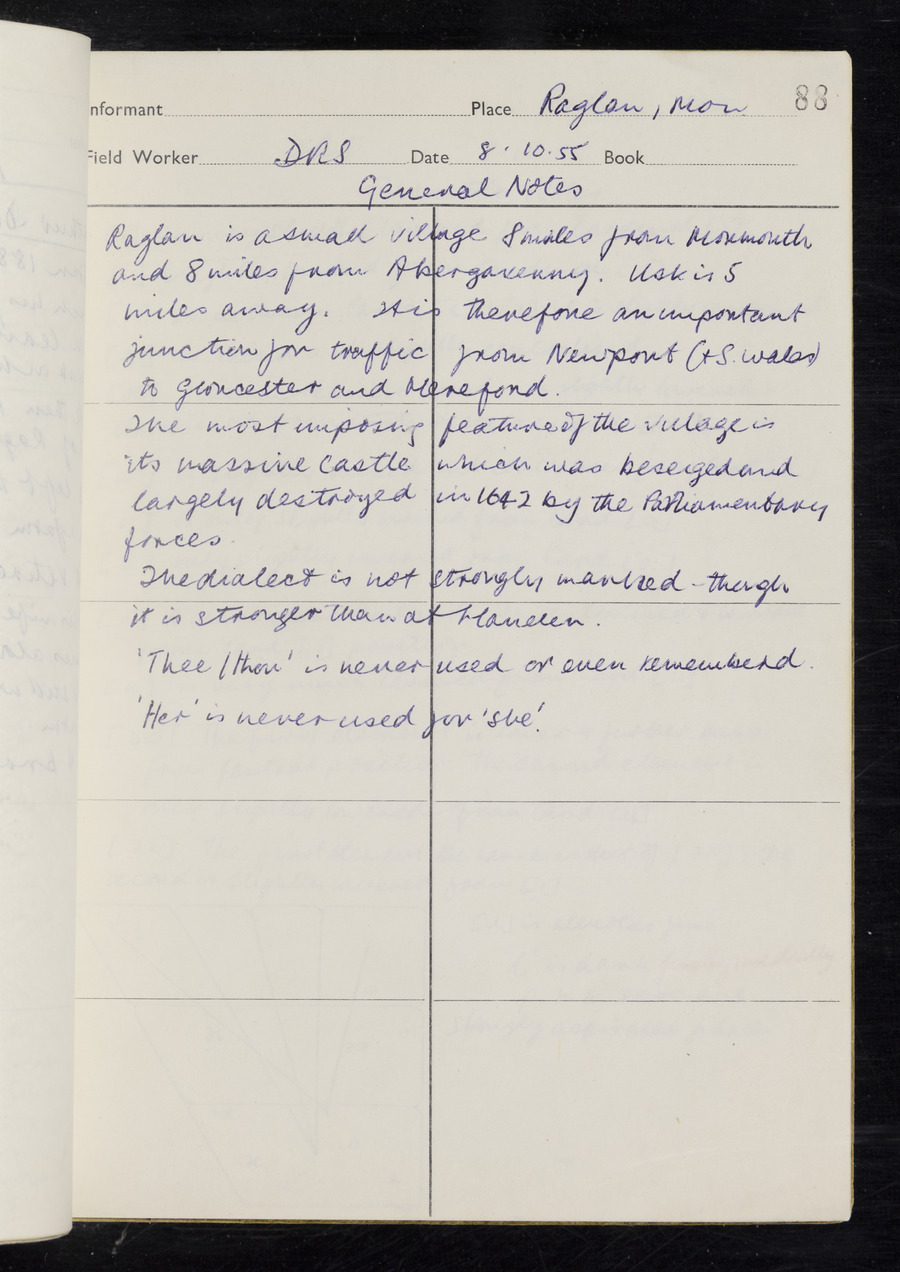 Informant Place Raglan, Mon 88
Field Worker DRS Date 8.10.55 Book
General Notes
Raglan is a small village 8 miles from Monmouth
and 8 miles from Abergavenny. Usk is 5
miles away. It is therefore an important
junction for traffic from Newport (+ S. Wales)
to Gloucester and Hereford.
The most imposing feature of the village is
its massive castle which was beseiged and
largely destroyed in 1642 by the Parliamentary
forces.
The dialect is not strongly marked - though
it is stronger than at Llanellen.
'Thee/thou' is never used or even rememberd.
'Her' is never used for 'she'.